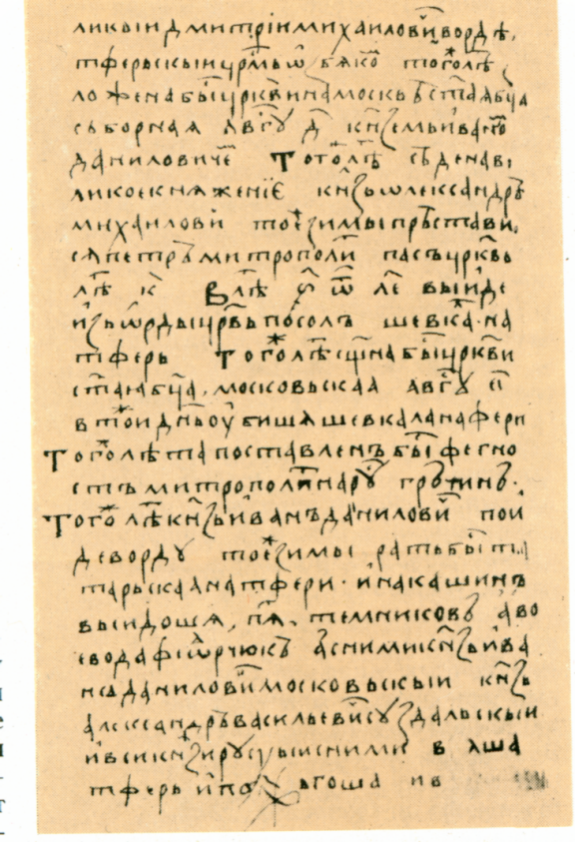 ликыи дмитрїи михаилови҃ ворд ѣ,
тферьскыи црмьѡ бѧко҃ того лѣ҃
ложена бы҃ цркви на москвѣ ст҃аѧ бц҃а
съборнаѧ авгꙋ҃ д҃ кн҃ѕемь ивано҃
даниловиче҃ Того лѣ҃ сѣде на ви
ликое кнѧженїе кн҃ѕь ѡлександрѣ
михаилови҃ тоѐ зимы прѣстави
сѧ петръ митрополи҃ пасъ црквь
лѣ҃ к҃ В лѣ҃ ѿ ле҃ выиде
из ѡрды црв҃ь посолъ шевка҃ на
тферь Того лѣ҃ сщ҃на бы҃ цркви
ст҃аѧ бц҃а, московьскаѧ авгꙋ҃
в тои дн҃ь ѹбишѧ шевкала на фери
Того лѣта поставленъ бы҃ феѡгно
стъ митрополи҃ на рꙋ҃ гречинъ.
Того лѣ҃ кн҃ѕь иванъ данилови҃ пои
де ворду тоѐ зимы рать бы҃ та
тарьскаѧ на тфери. и на кашинъ
выидошѧ, пѧ҃, темниковъ а во
евода фѡрчюкъ а с ними кн҃ѕь ива
нъ данилови҃ московьскыи кн҃ѕь
александръ васильеви҃ суздальскыи
и вси кн҃ѕи русꙋ҃ыи с ними вꙁѧша
тферь и пожьгоша и в